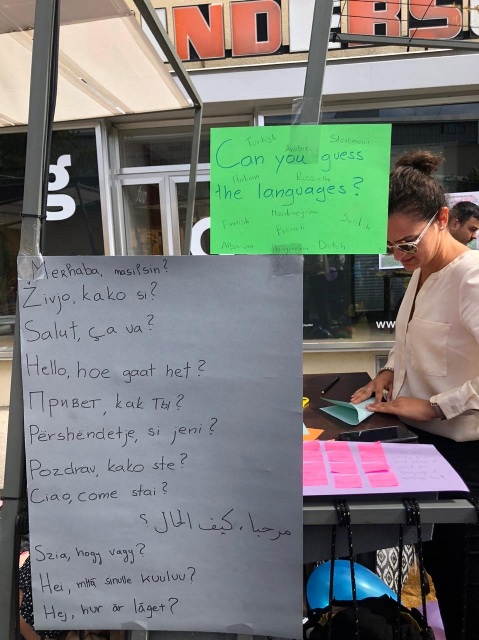 NDERS
g
Turkish
Slovenian
Arabic
Can you guess
Italian
Russian
the languages?
Montenegrin
Finnish
French
Swedish
Albanian
Hungarian
Dutch
Merhaba, nasilsin?
Živjo, kako si?
Salut, ça va?
Hello, hoe gaat het?
Привет, как ты?
Përshëndetje, si jeni?
Pozdrav, kako ste?
Ciao, come stai?
مرحبا، كيف الحال؟
Szia, hogy vagy?
Hei, mitä sinulle kuuluu?
Hej, hur är läget?
ww